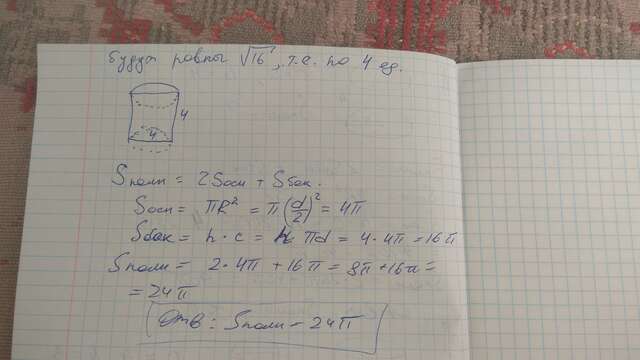 будут равны √16, т.е. по 4 ед.
4
4
Sполн = 2Sосн + Sбок.
Sосн = πR² = π(d/2)² = 4π
Sбок = h · c = h πd = 4 · 4π = 16π
Sполн = 2 · 4π + 16π = 8π + 16π =
= 24π
Отв: Sполн = 24π